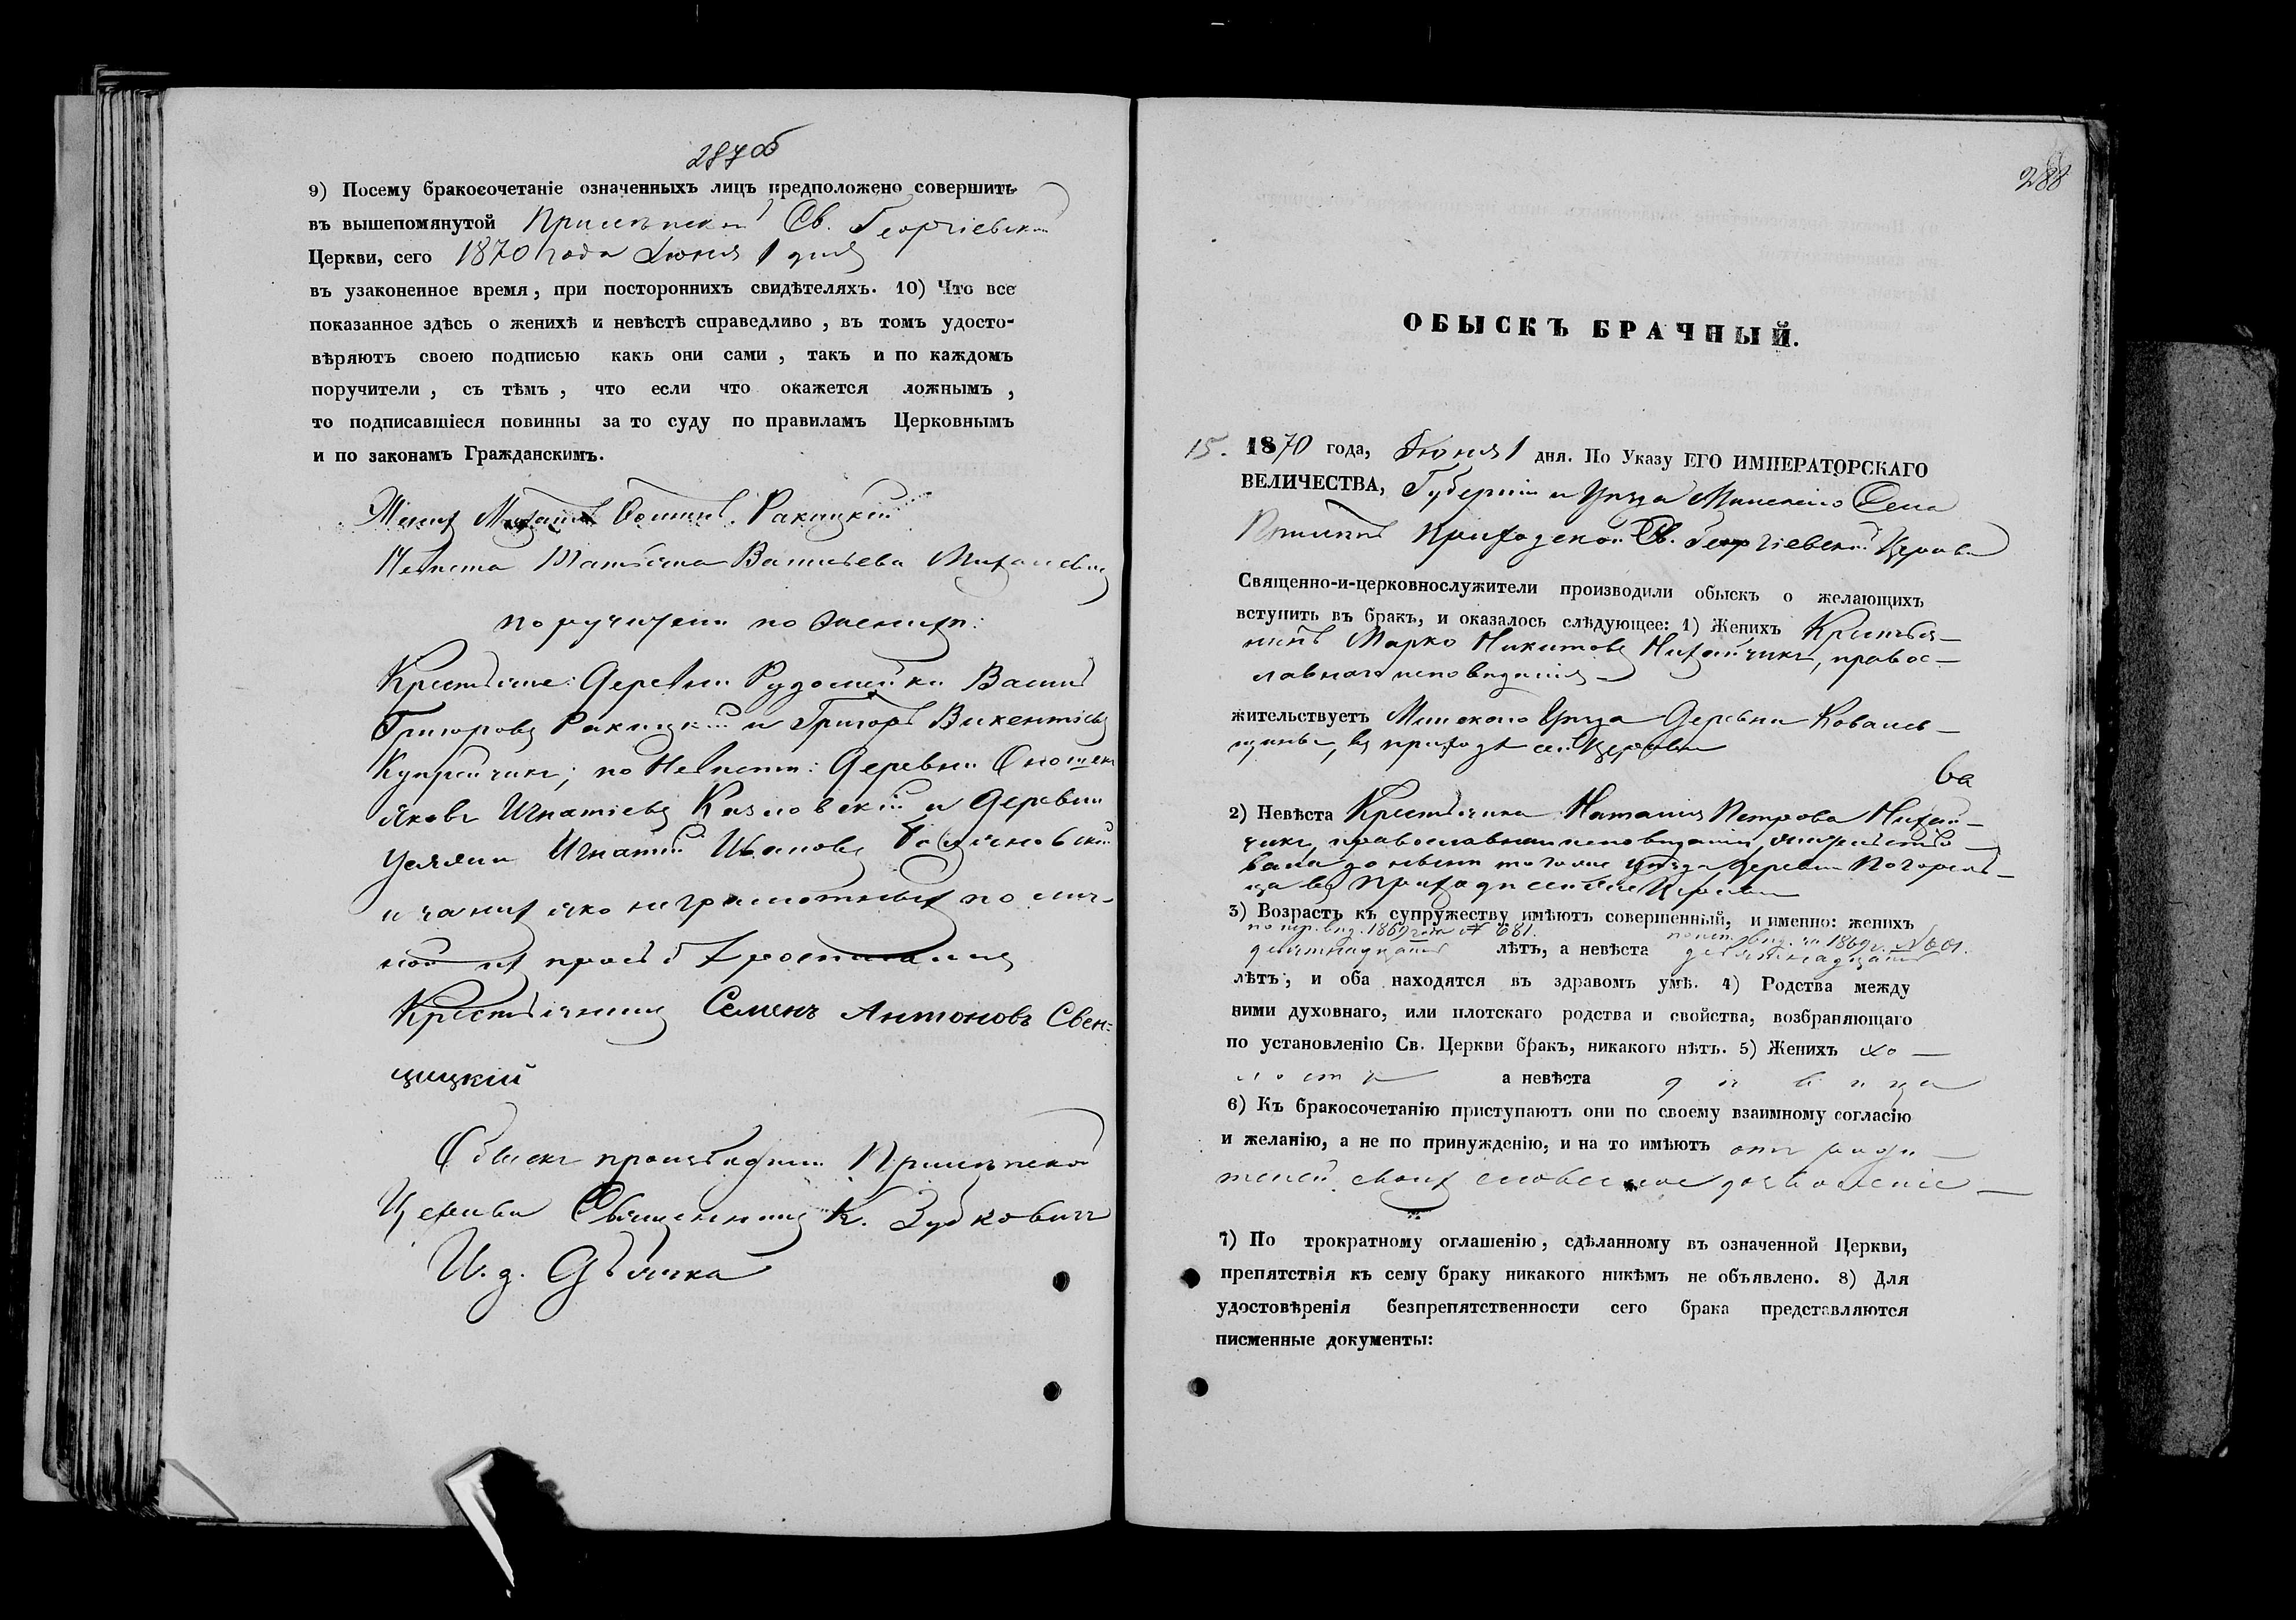 287об
9) Посему бракосочетаніе означенныхъ лицъ предположено совершить
въ вышепомянутой Прилѣпской Св. Георгіевской
Церкви, сего 1870 года Іюня 1 дня
въ узаконенное время, при постороннихъ свидѣтеляхъ. 10) Что все
показанное здѣсь о женихѣ и невѣстѣ справедливо, въ томъ удосто-
вѣряютъ своею подписью какъ они сами, такъ и по каждомъ
поручители, съ тѣмъ, что если что окажется ложнымъ,
то подписавшіеся повинны за то суду по правиламъ Церковнымъ
и по законамъ Гражданскимъ.
Женихъ Ракицкій
Невѣста Татьяна Васильева
поручители по Женихѣ:
Крестьяне: Деревни Василій
Григоровъ Ракицкій и Григорій Викентіевъ
Купрейчикъ; по Невѣстѣ: Деревни
Яковъ Игнатіевъ Козловскій и Деревни
Игнатій Ивановъ
а за нихъ яко неграмотныхъ по лич-
ной ихъ прозьбѣ росписался
Крестьянинъ Семенъ Антоновъ Свен=
цицкій
Обыскъ производили Прилѣпской
Церкви Священникъ К. Зубковичъ
И. д. Дьячка
288
ОБЫСКЪ БРАЧНЫЙ.
15. 1870 года, Іюня 1 дня. По Указу ЕГО ИМПЕРАТОРСКАГО
ВЕЛИЧЕСТВА, Губерніи и Уѣзда Минскаго Села
Прилѣпъ Приходской Св. Георгіевской Церкви
Священно-и-церковнослужители производили обыскъ о желающихъ
вступить въ бракъ, и оказалось слѣдующее: 1) Женихъ Крестья-
нинъ Марко Никитовъ Михайчикъ, правос-
лавнаго исповѣданія
жительствуетъ Минскаго Уѣзда Деревни Ковалев-
щины, въ приходѣ сей Церкви
ва
2) Невѣста Крестьянка Наталія Петрова Михай-
чикъ, православнаго исповѣданія, жительство-
вала до нынѣ того же уѣзда Деревни Погорѣль-
ца въ приходѣ сей же Церкви
3) Возрастъ къ супружеству имѣютъ совершенный, и именно: женихъ
по исп. вѣд. 1869 года № 681. по исп. вѣд. за 1869 г. №
девятнадцать лѣтъ, а невѣста девятнадцать
лѣтъ; и оба находятся въ здравомъ умѣ. 4) Родства между
ними духовнаго, или плотскаго родства и свойства, возбраняющаго
по установленію Св. Церкви бракъ, никакого нѣтъ. 5) Женихъ хо-
лостъ а невѣста дѣвица
6) Къ бракосочетанію приступаютъ они по своему взаимному согласію
и желанію, а не по принужденію, и на то имѣютъ отъ роди-
телей своихъ словесное дозволеніе
7) По трократному оглашенію, сдѣланному въ означенной Церкви,
препятствія къ сему браку никакого никѣмъ не объявлено. 8) Для
удостовѣренія безпрепятственности сего брака представляются
писменные документы: